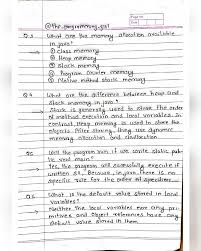 @the.programming_girl
Q.3 What are the memory allocation available
in java?
① Class memory
② Heap memory
③ Stack memory
④ Program counter memory
⑤ Native method stack memory
Q.4 What are the difference between heap and
stack memory in java?
Stack is generally used to store the order
of method execution and local variables. In
contrast, Heap memory is used to store the
objects. After storing, they use dynamic
memory allocation and deallocation
Q.5 Will the program run if we write static pub-
lic void main?
Yes, the program will successfully execute if
written so. Because, in java, there is no
specific rule for the order of specifiers
Q.6 What is the default value stored in local
variables?
Neither the local variables nor any pri-
mitives and object references have any
default value stored in them.